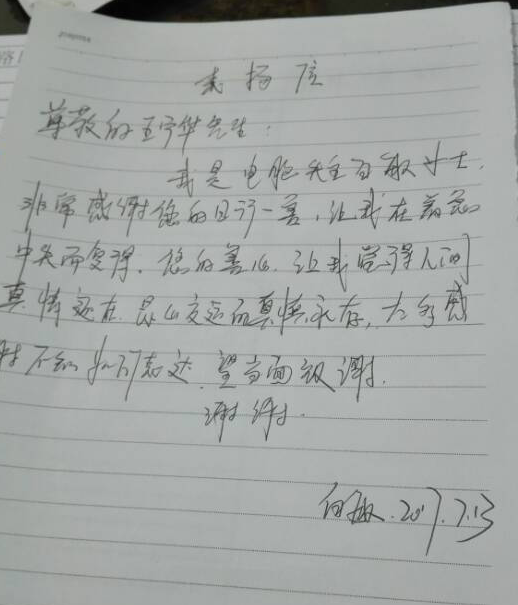 表扬信
尊敬的王宁华先生:
我是电脑失主向敏女士,
非常感谢您的日行一善,让我在着急
中失而复得.您的善心,让我觉得人间
真情还在.昆山交运的真情永存,太多感
谢不知如何表达,望当面致谢.
谢谢.
向敏.2017.7.13